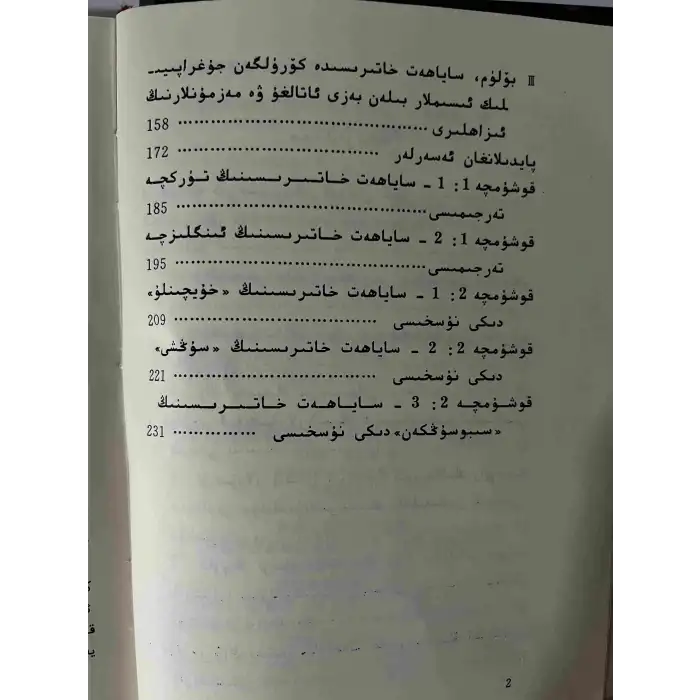 III بۆلۈم، ساياھەت خاتىرىسىدە كۆرۈلگەن جۇغراپىيى-
لىك ئىسىملار بىلەن بەزى ئاتالغۇ ۋە مەزمۇنلارنىڭ
ئىزاھلىرى ........................ 158
پايدىلانغان ئەسەرلەر ........................ 172
قوشۇمچە 1: 1 ـ ساياھەت خاتىرىسىنىڭ تۈركچە
تەرجىمىسى ........................ 185
قوشۇمچە 1: 2 ـ ساياھەت خاتىرىسىنىڭ ئىنگلىزچە
تەرجىمىسى ........................ 195
قوشۇمچە 2: 1 ـ ساياھەت خاتىرىسىنىڭ «خۇيچىنلۇ»
دىكى نۇسخىسى ........................ 209
قوشۇمچە 2: 2 ـ ساياھەت خاتىرىسىنىڭ «سۇڭشى»
دىكى نۇسخىسى ........................ 221
قوشۇمچە 2: 3 ـ ساياھەت خاتىرىسىنىڭ
«سىبوسۇڭكەن» دىكى نۇسخىسى ............... 231
2